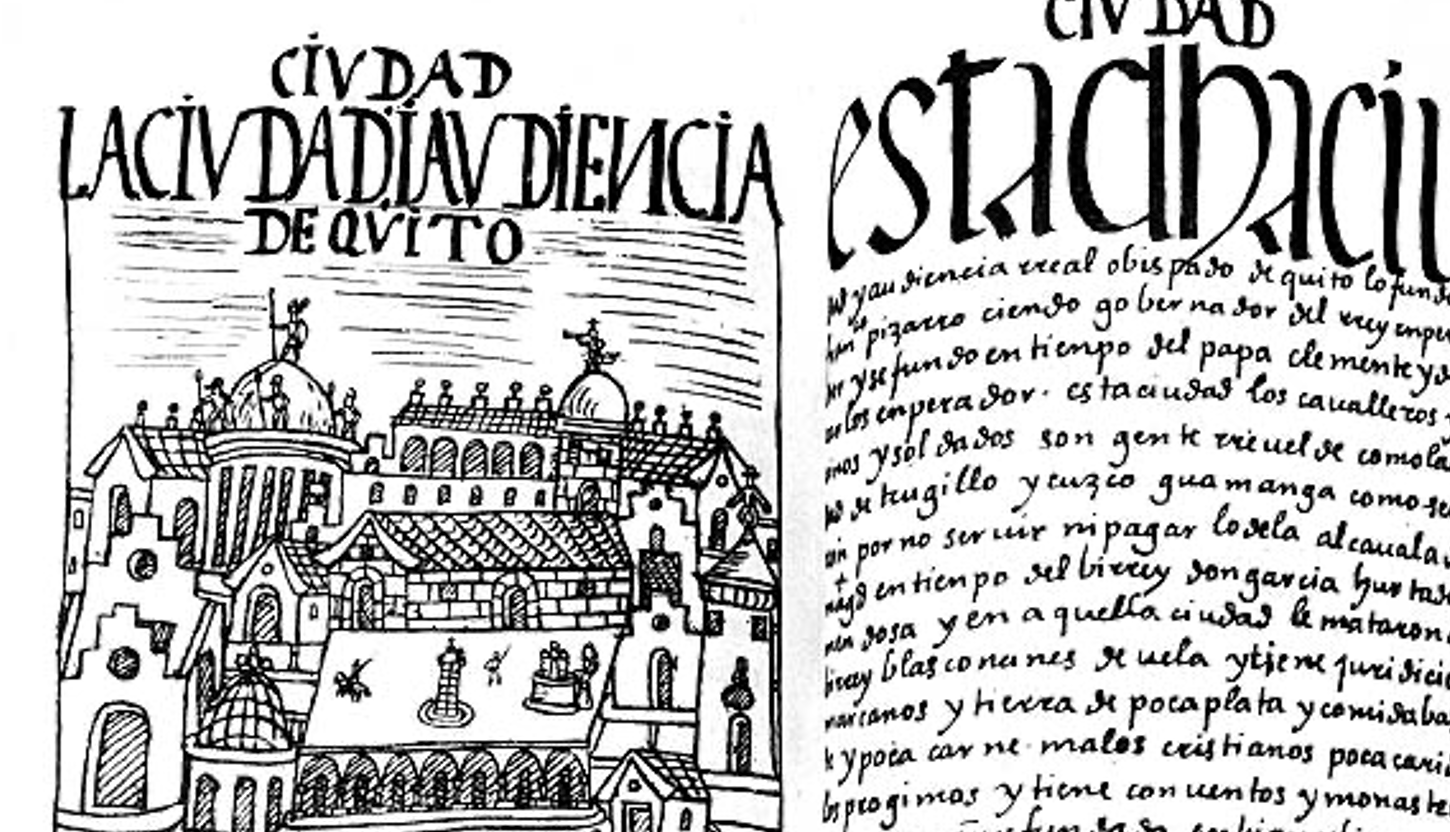 CIVDAD
LACIVDADIAVDIENCIA
DE QVITO
CIVDAD
estadhaciu
y audiencia rreal obispado de quito lo fund
pizarro ciendo gobernador del rrey enpe
y se fundo en tienpo del papa clemente y d
los enperador. esta ciudad los caualleros
y soldados son gente rreuelde como la
de trugillo y cuzco guamanga como se
por no seruir ni pagar lo de la alcauala
en tienpo del birrey don garcia hurtad
dosa y en aquella ciudad le mataron
birrey blasco nunes de uela y tiene juridici
y tierra de poca plata y comida ba
y poca carne. malos cristianos poca cari
progimos y tiene conuentos y monaste